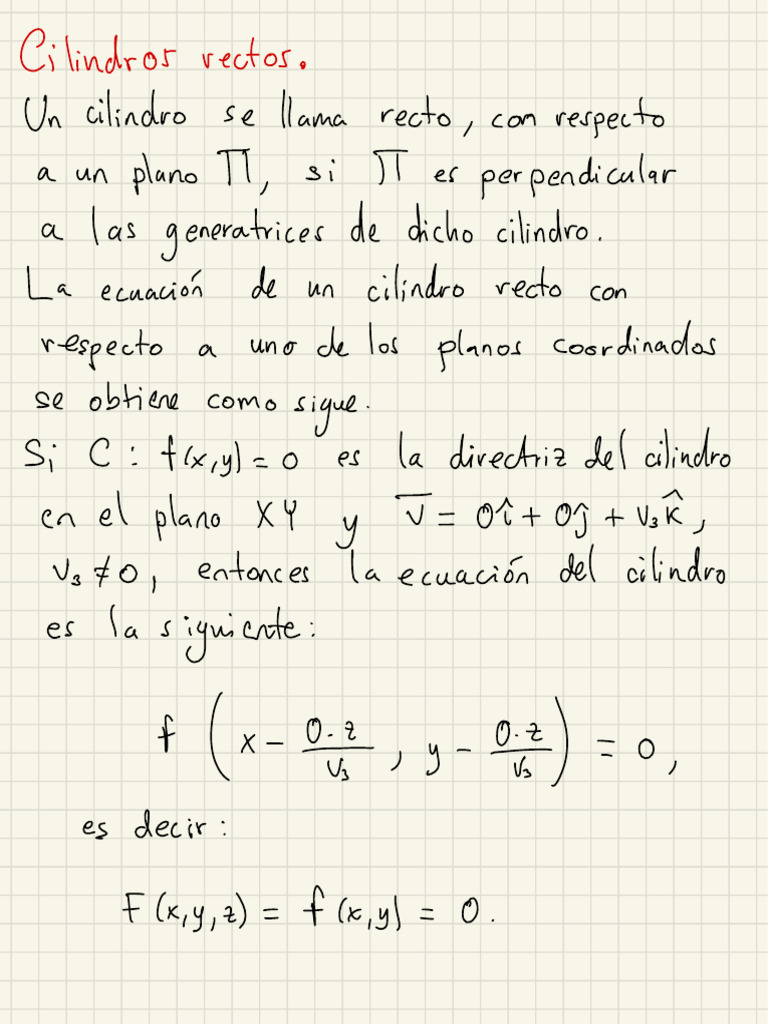 Cilindros rectos.
Un cilindro se llama recto, con respecto
a un plano Π, si Π es perpendicular
a las generatrices de dicho cilindro.
La ecuación de un cilindro recto con
respecto a uno de los planos coordinados
se obtiene como sigue.
Si C : f(x,y) = 0 es la directriz del cilindro
en el plano XY y v̅ = 0î + 0ĵ + v₃k̂,
v₃ ≠ 0, entonces la ecuación del cilindro
es la siguiente:
f ( x - 0·z/v₃ , y - 0·z/v₃ ) = 0,
es decir:
F(x,y,z) = f(x,y) = 0.